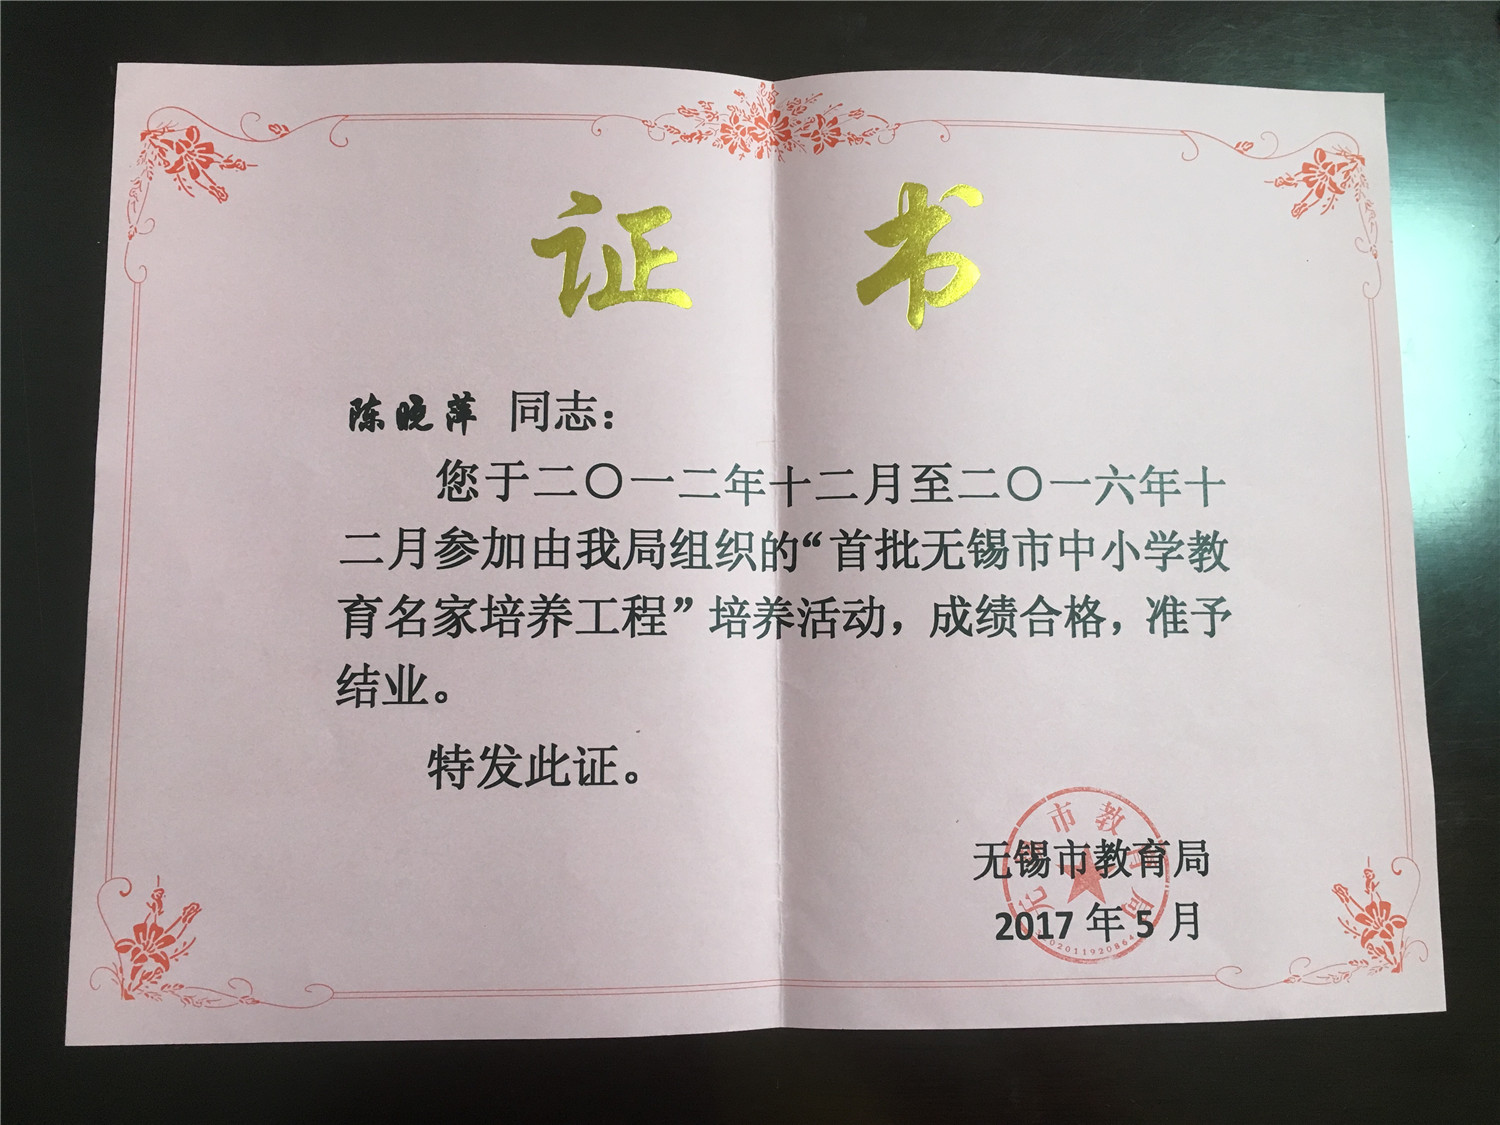 证 书
陈晓萍 同志：
您于二〇一二年十二月至二〇一六年十
二月参加由我局组织的“首批无锡市中小学教
育名家培养工程”培养活动，成绩合格，准予
结业。
特发此证。
无锡市教育局
2017 年 5 月
无锡市教育局